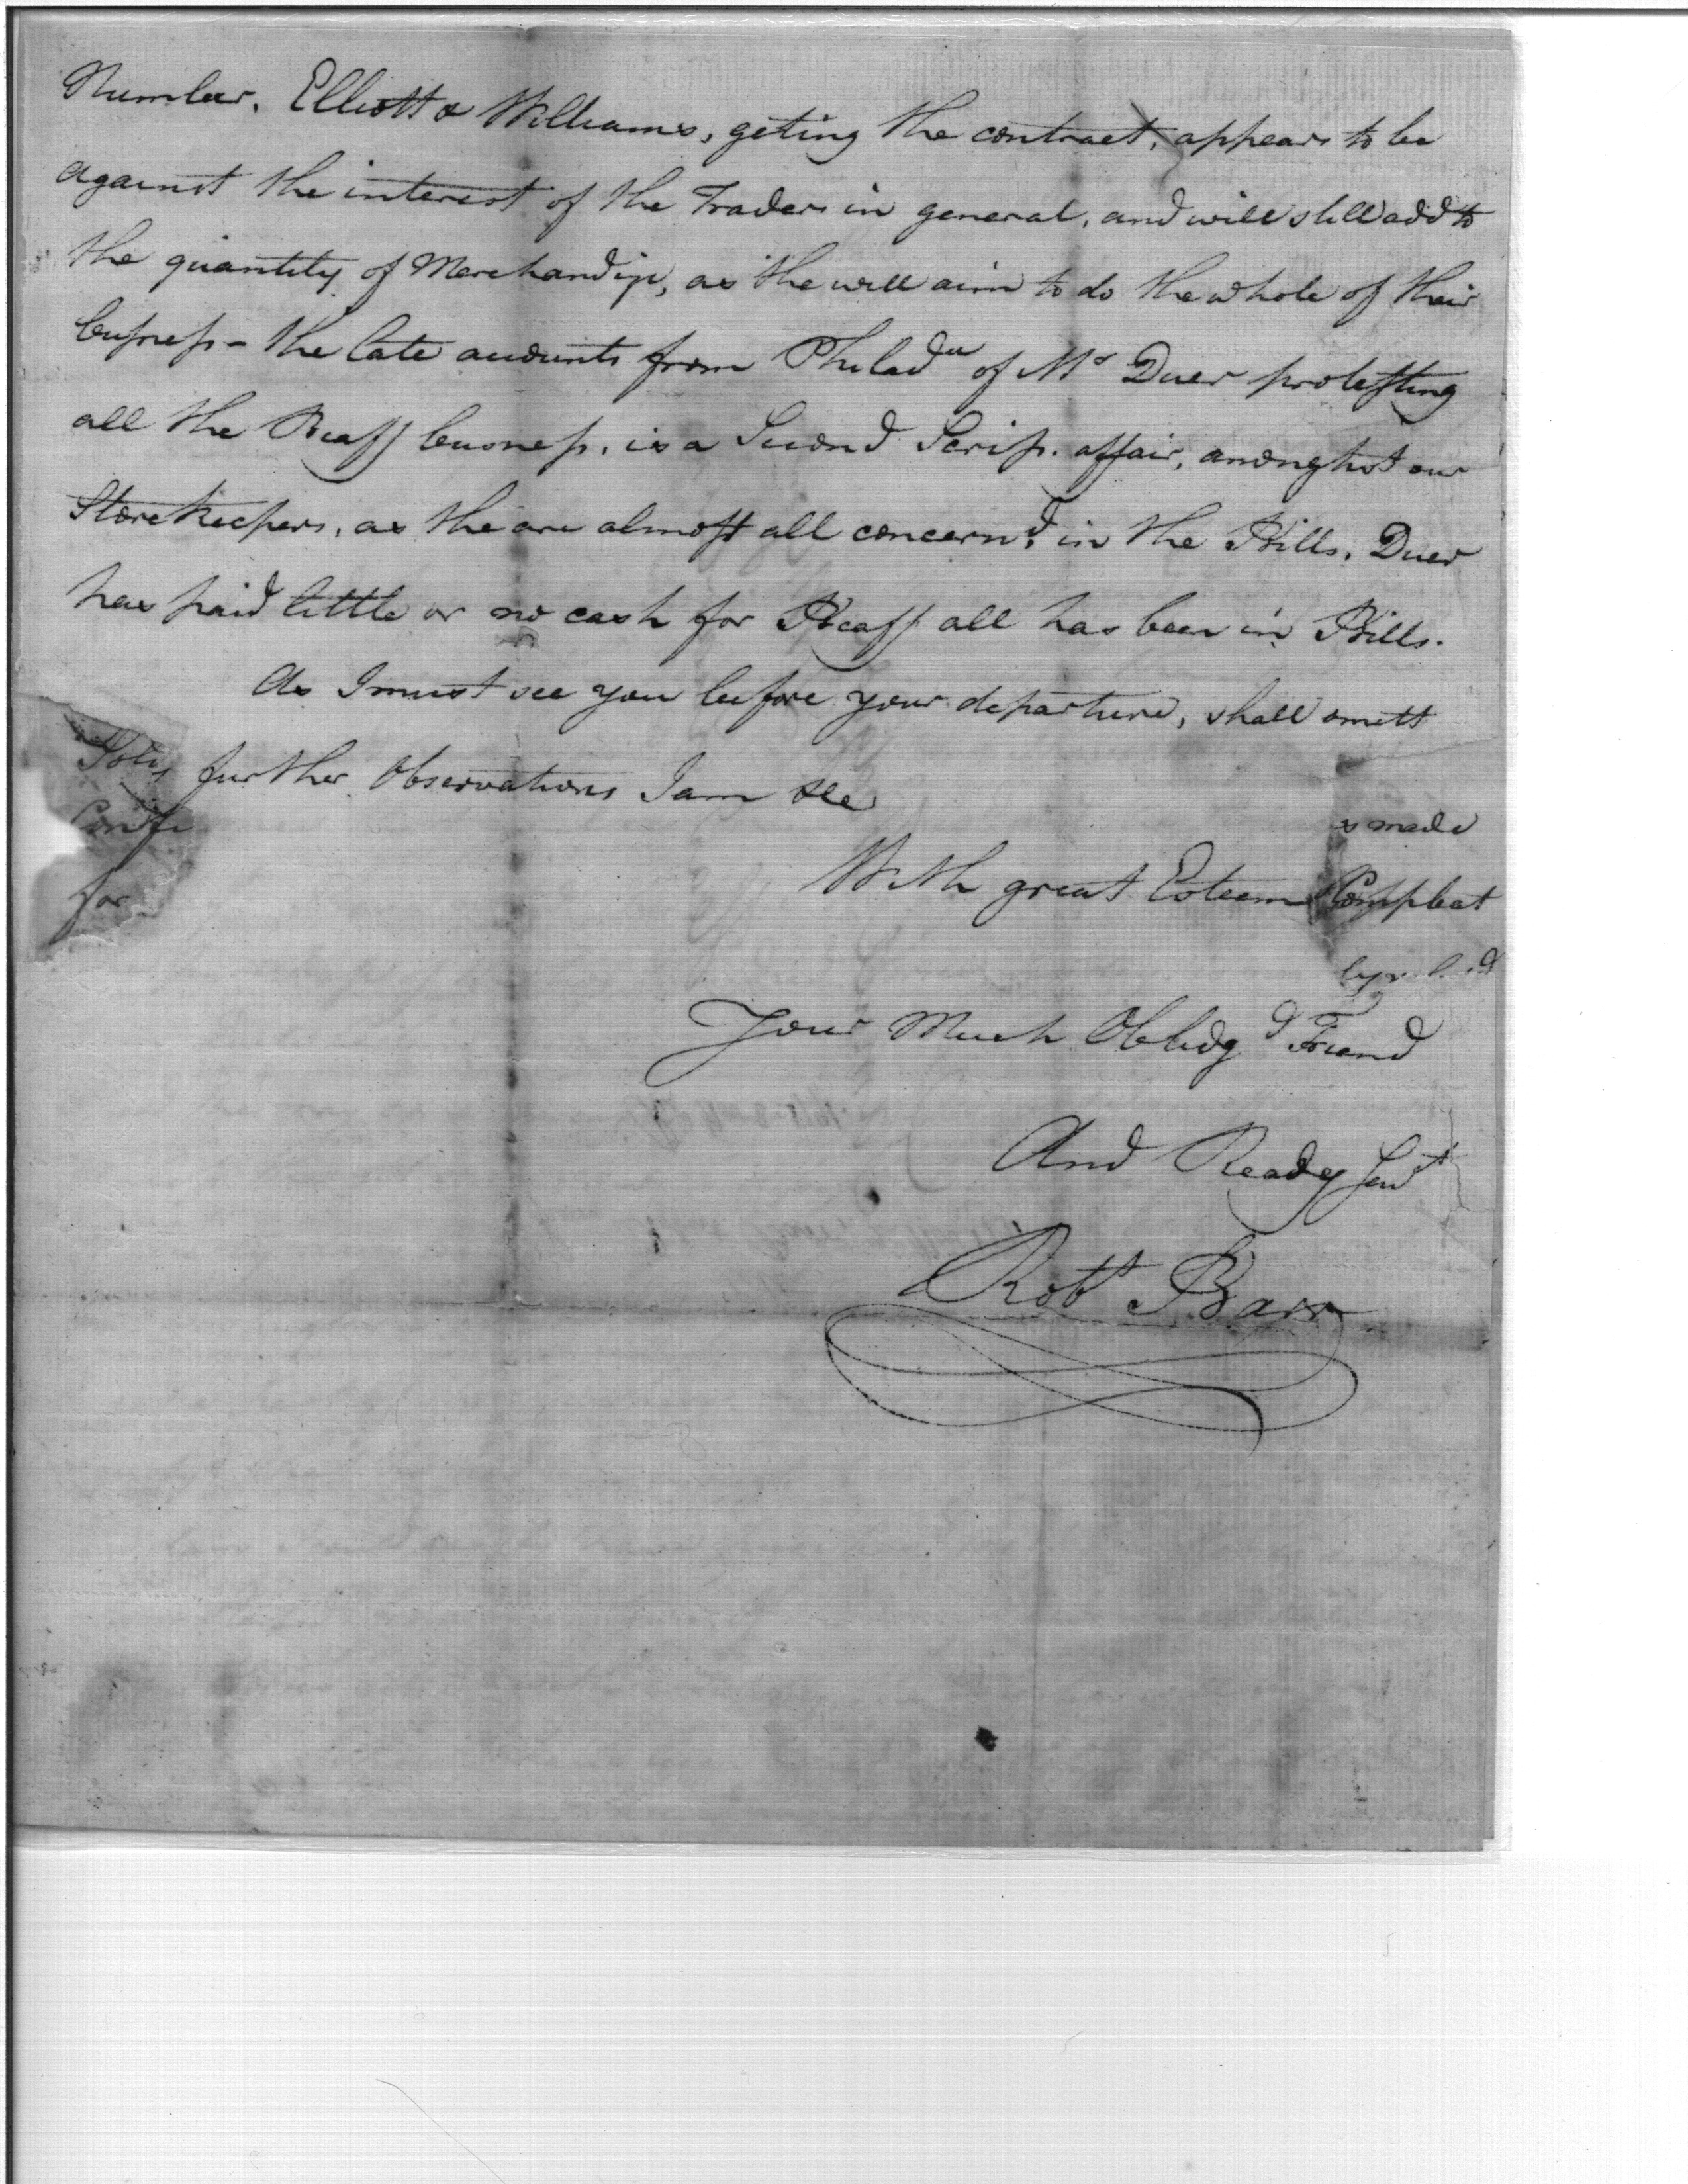 Number. Elliott & Williams, geting the contract, appears to be
against the interest of the Traders in general, and will still add to
the quantity of Merchandise, as the will aim to do the whole of their
busness - the late accounts from Philada of Mr Duer protesting
all the Beaff busness, is a Second Scrip. affair, amonghst our
Storekeepers, as the are almost all concernd in the Bills. Duer
has paid little or no cash for Beaff all has been in Bills.
As I must see you before your departure, shall omitt
further Observations I am &c
made
for
With great Esteem
Compleat
Your Much Oblidgd Friend
And Ready Sert
Robt Barr